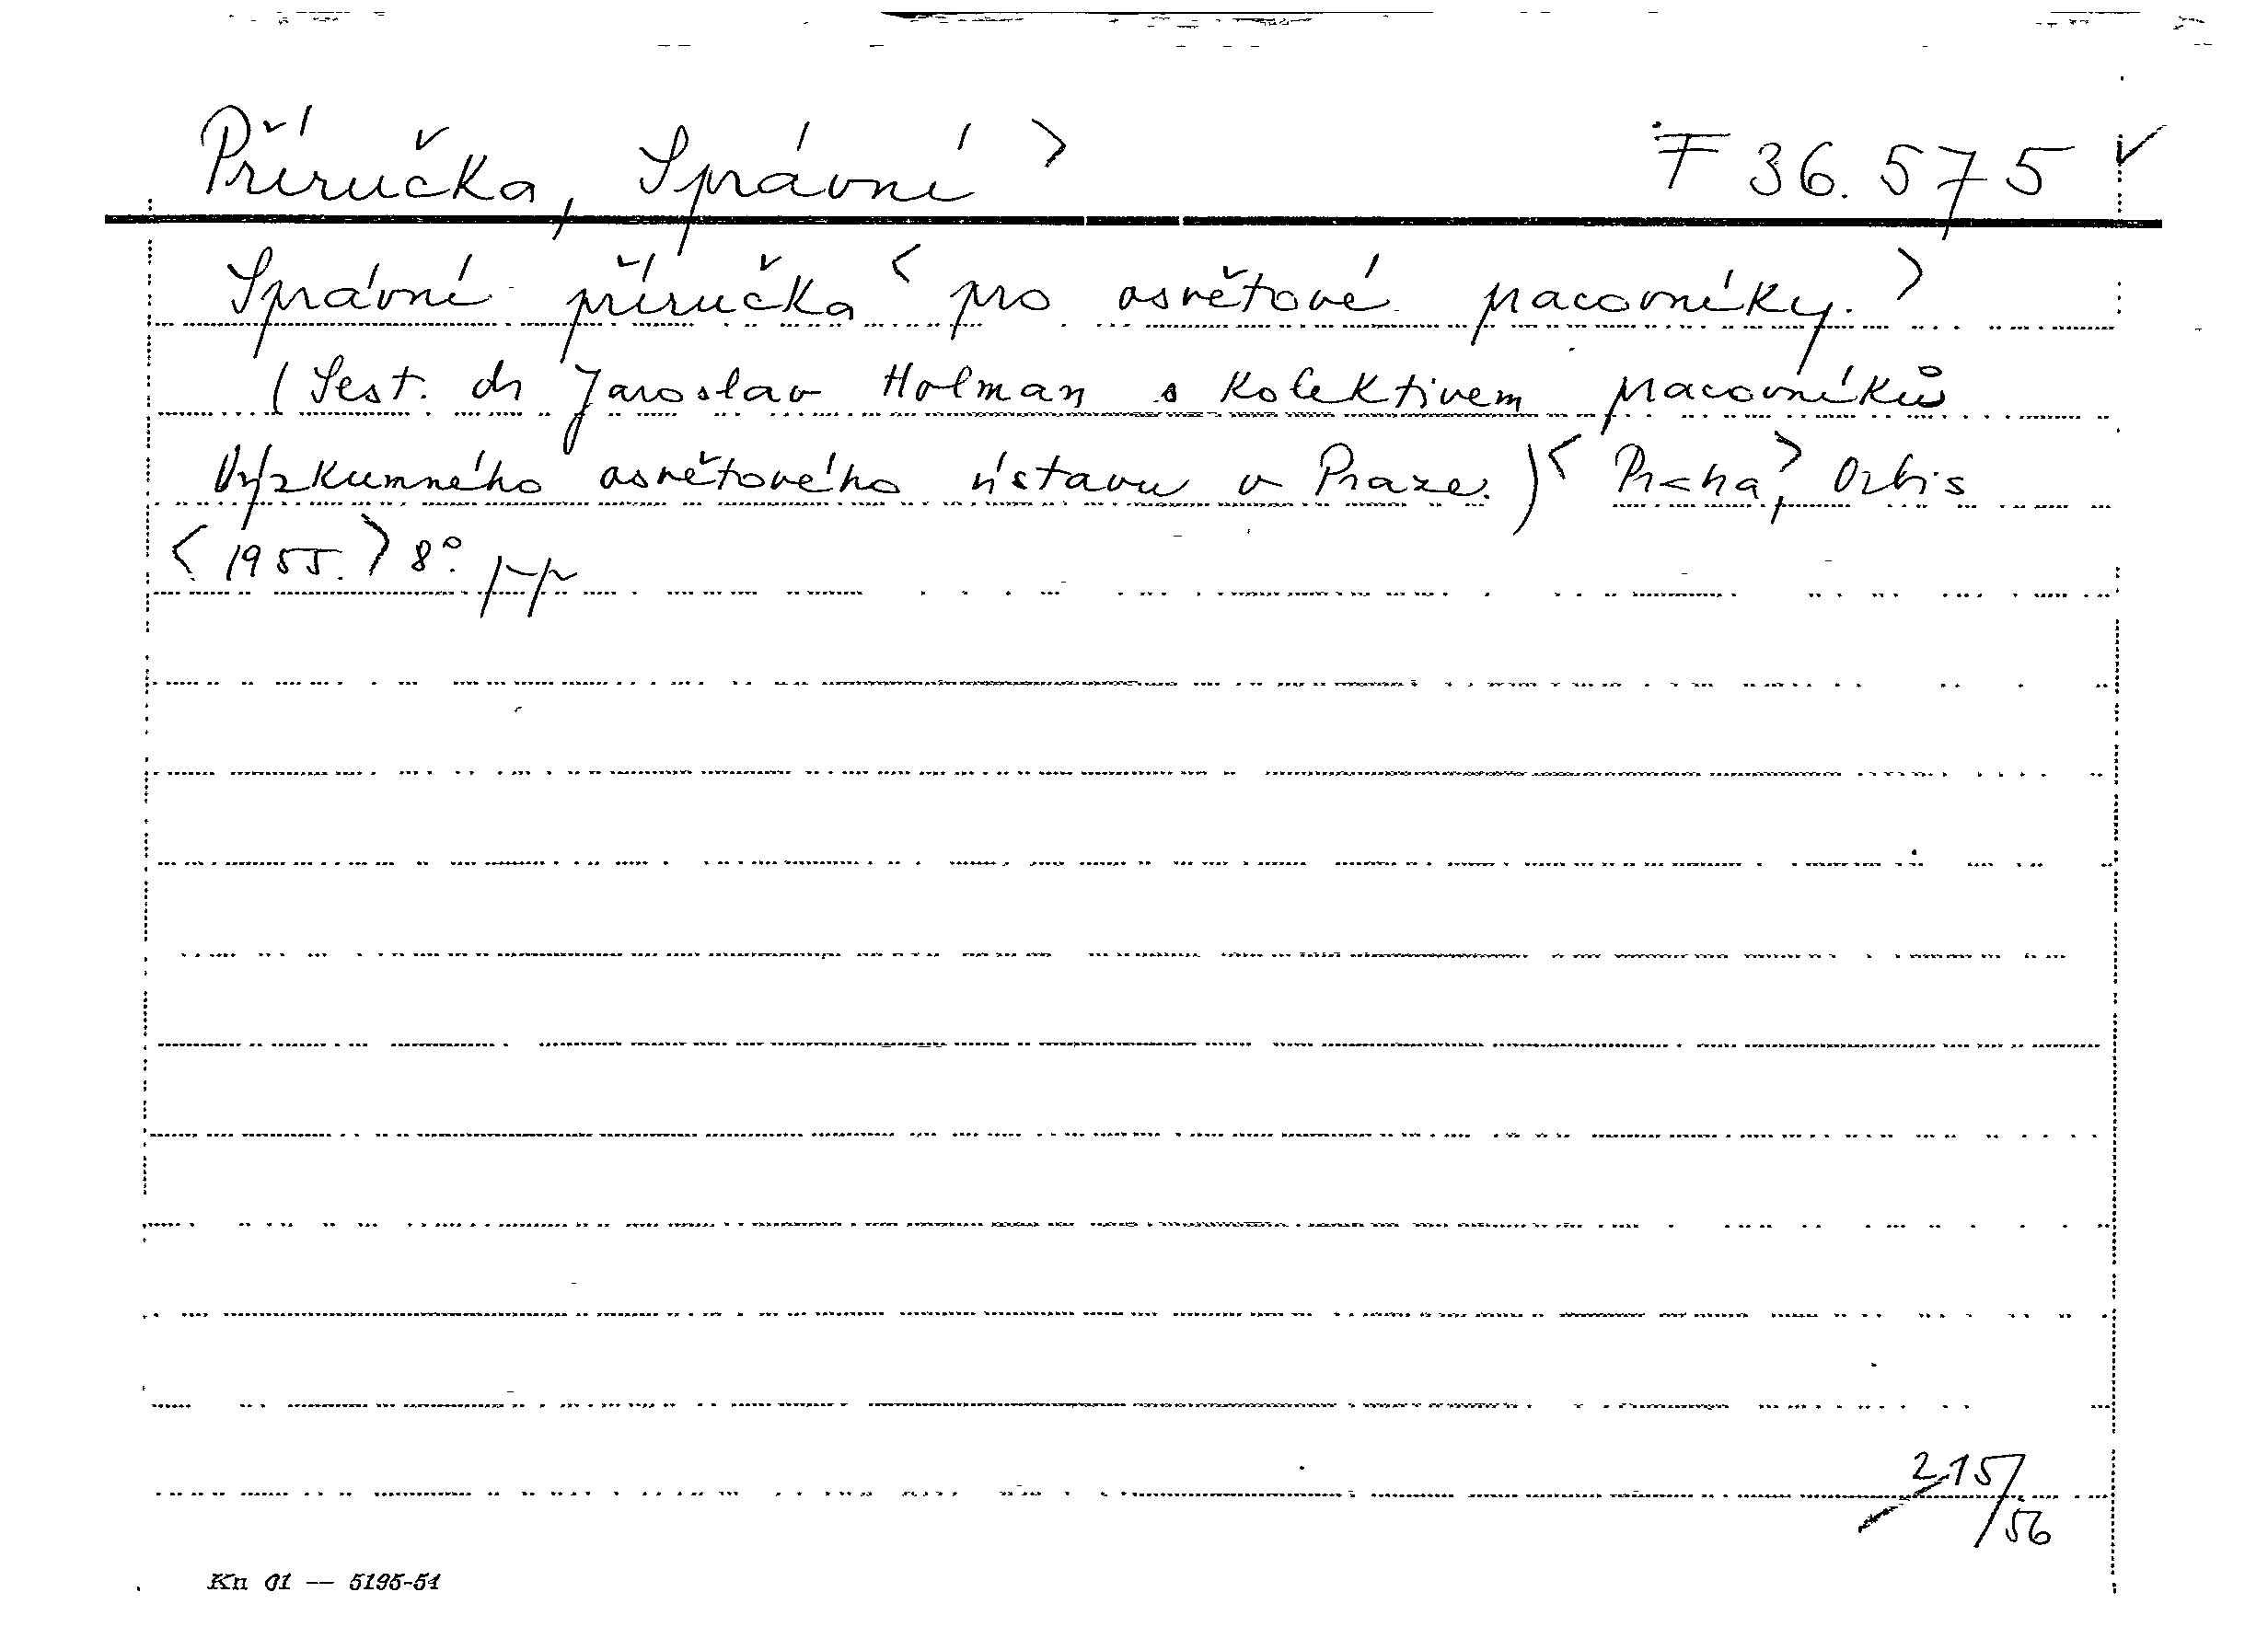 Příručka, Správní > F 36.575 ✓
Správní příručka < pro osvětové pracovníky. >
(Sest. dr Jaroslav Holman s kolektivem pracovníků
Výzkumného osvětového ústavu v Praze.) < Praha, > Orbis
< 1955. > 8°.
215/56
Kn 01 — 5195-54